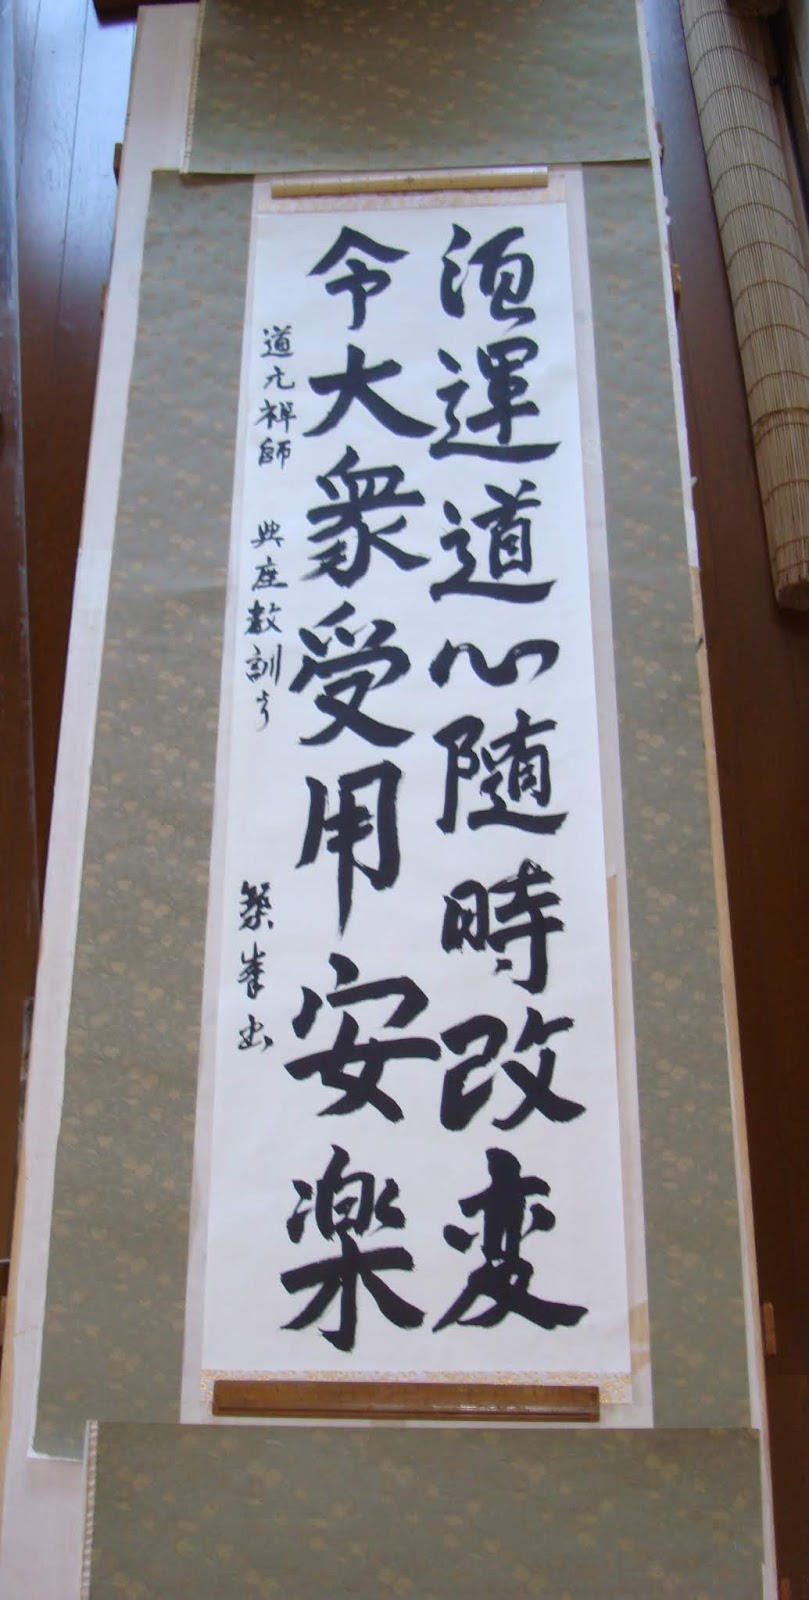 須運道心随時改変
令大衆受用安楽
道元禅師 典座教訓ゟ
築峯書